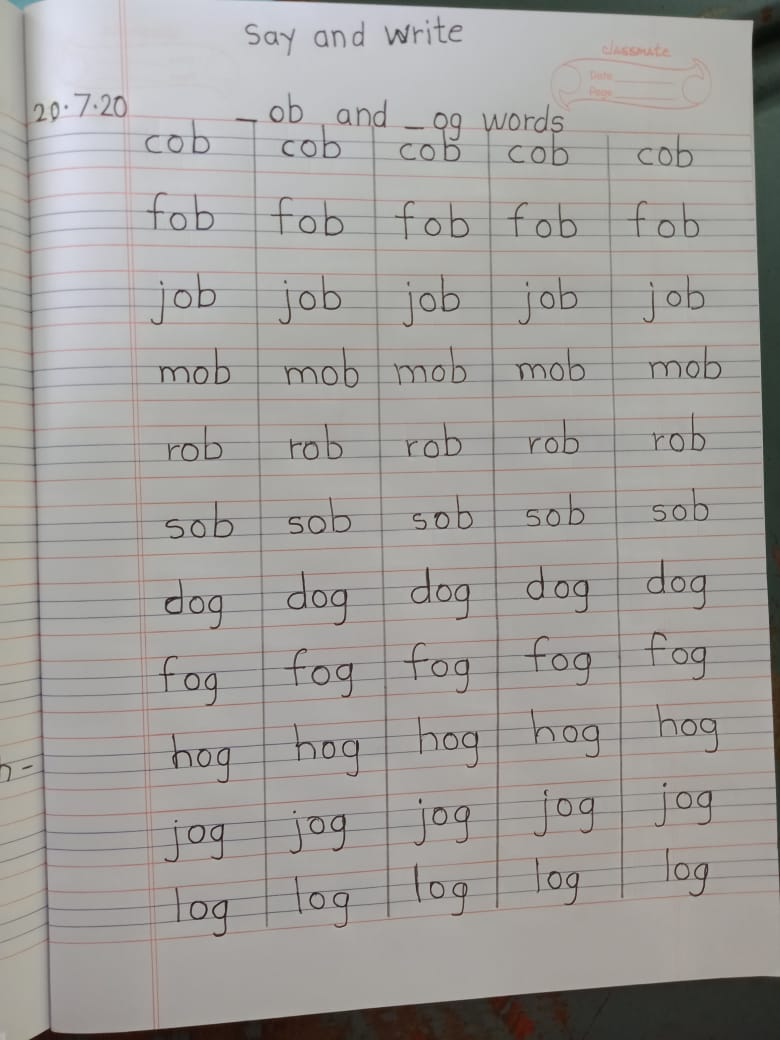 say and write
classmate
Date
Page
20.7.20
_ ob and _ og words
cob cob cob cob cob
fob fob fob fob fob
job job job job job
mob mob mob mob mob
rob rob rob rob rob
sob sob sob sob sob
dog dog dog dog dog
fog fog fog fog fog
hog hog hog hog hog
jog jog jog jog jog
log log log log log